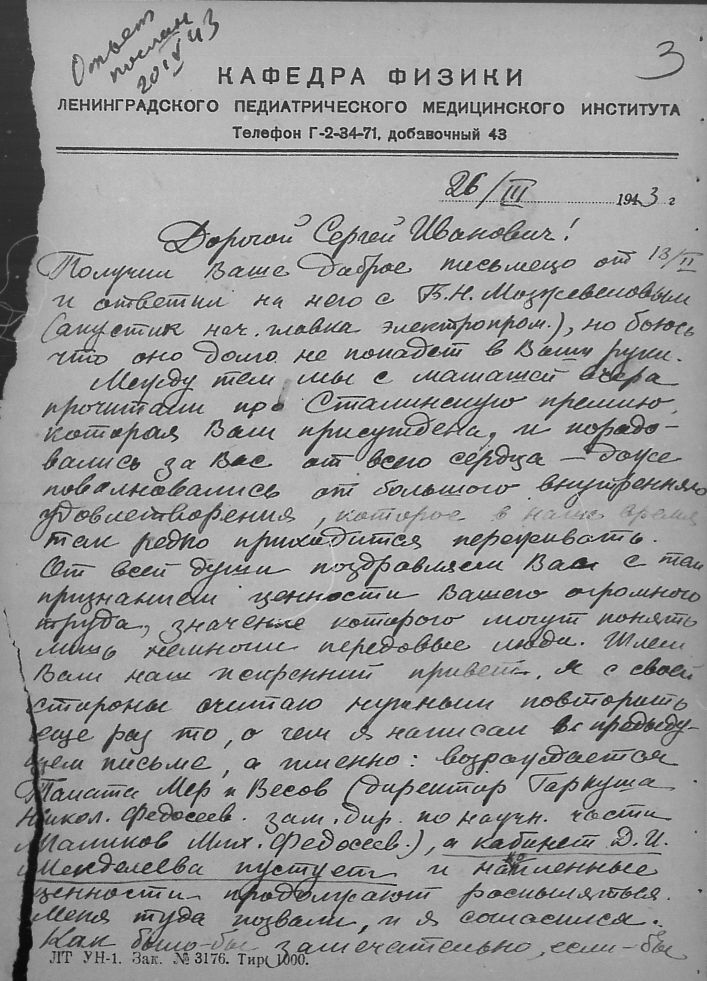 Ответ
послан
20 IV 43
3
КАФЕДРА ФИЗИКИ
ЛЕНИНГРАДСКОГО ПЕДИАТРИЧЕСКОГО МЕДИЦИНСКОГО ИНСТИТУТА
Телефон Г-2-34-71, добавочный 43
26/III 1943 г
Дорогой Сергей Иванович!
Получил Ваше доброе письмецо от 13/II
и ответил на него с Б.Н. Можжевеловым
нач. главка электропром.), но боюсь
что оно долго не попадет в Ваши руки.
Между тем мы с мамашей вчера
прочитали про Сталинскую премию,
которая Вам присуждена, и порадо-
вались за Вас от всего сердца – даже
поволновались от большого внутреннего
удовлетворения, которое в наше время
так редко приходится переживать.
От всей души поздравляем Вас с тем
признанием ценности Вашего огромного
труда, значение которого могут понять
лишь немногие передовые люди. Шлем
Вам наш искренний привет. Я с своей
стороны считаю нужным повторить
еще раз то, о чем я написал в предыду-
щем письме, а именно: возрождается
Палата Мер и Весов (директор Гаркуша
Никол. Федосеев. зам. дир. по научн. части
Маликов Мих. Федосеев.), а кабинет Д.И.
Менделеева пустует и накопленные
ценности продолжают распыляться.
Меня туда позвали, и я согласился.
Как было-бы замечательно, если-бы
ЛТ УН-1. Зак. № 3176. Тир. 1000.